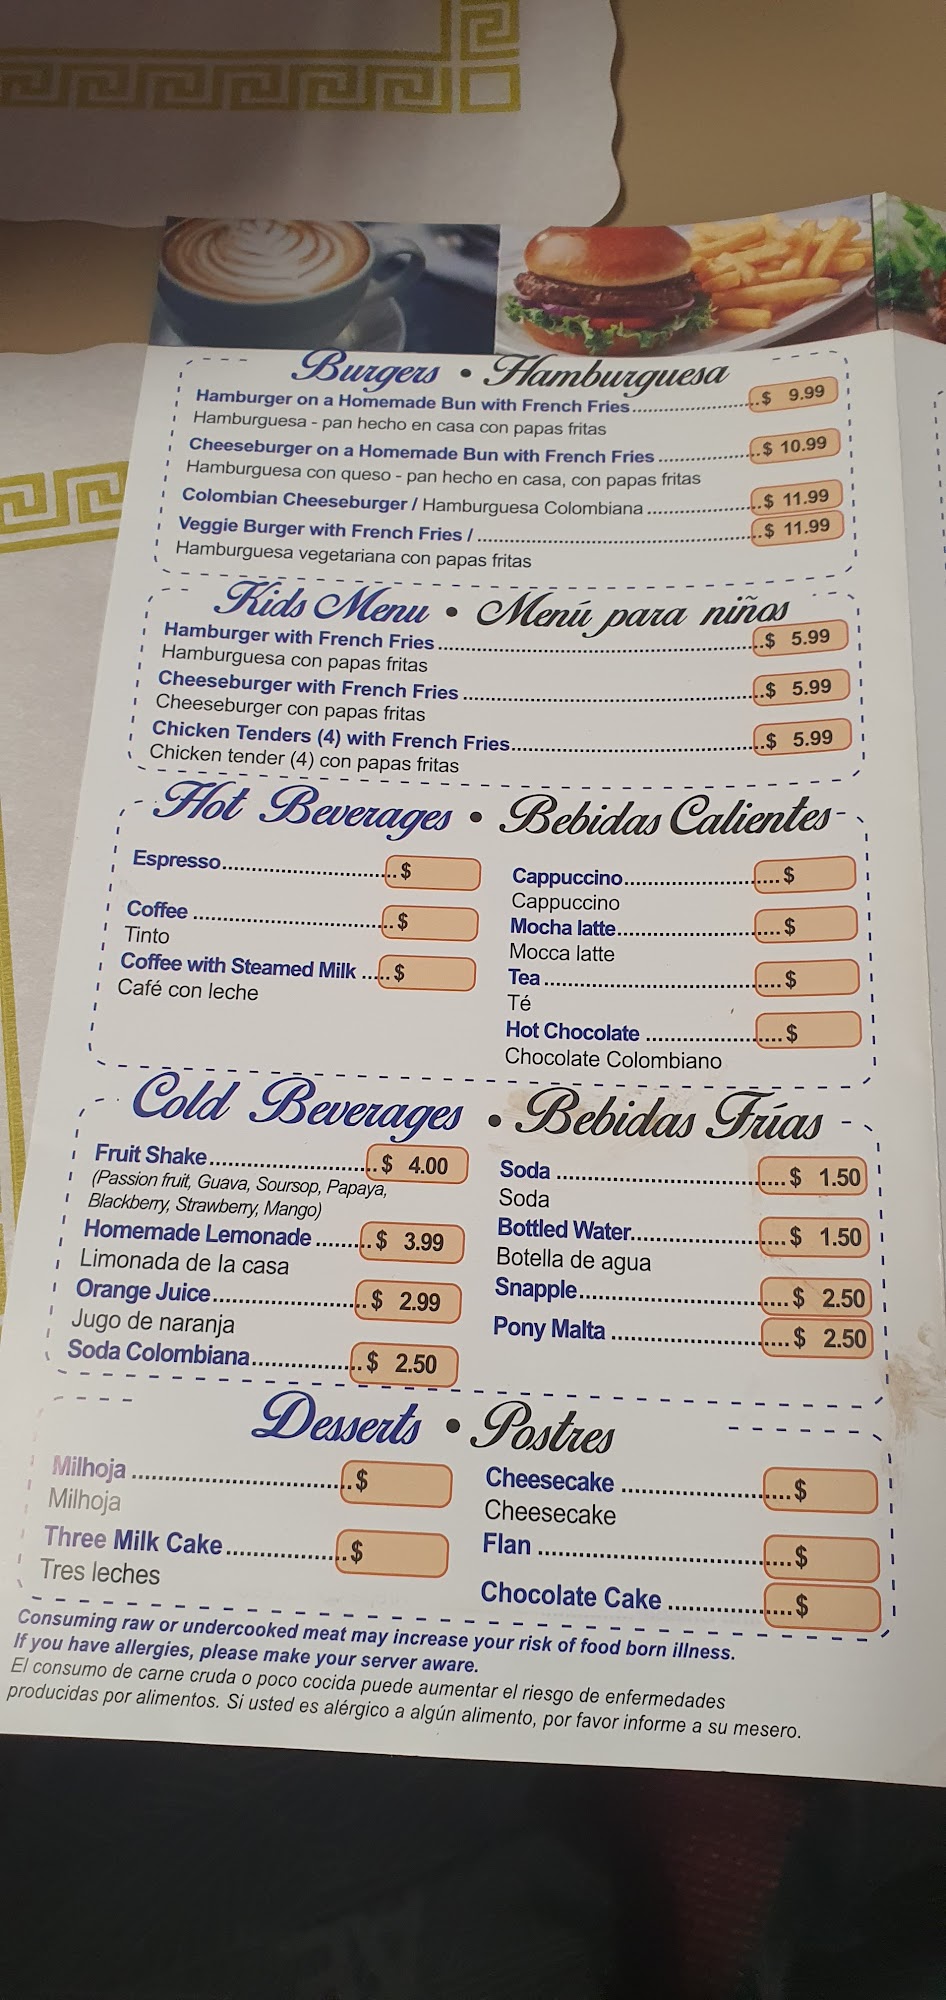 Burgers • Hamburguesa
Hamburger on a Homemade Bun with French Fries.....................$ 9.99
Hamburguesa - pan hecho en casa con papas fritas
Cheeseburger on a Homemade Bun with French Fries.................$ 10.99
Hamburguesa con queso - pan hecho en casa, con papas fritas
Colombian Cheeseburger / Hamburguesa Colombiana...................$ 11.99
Veggie Burger with French Fries /..................................................$ 11.99
Hamburguesa vegetariana con papas fritas
Kids Menu • Menú para niños
Hamburger with French Fries.........................................................$ 5.99
Hamburguesa con papas fritas
Cheeseburger with French Fries....................................................$ 5.99
Cheeseburger con papas fritas
Chicken Tenders (4) with French Fries...........................................$ 5.99
Chicken tender (4) con papas fritas
Hot Beverages • Bebidas Calientes
Espresso..............................$
Coffee..................................$
Tinto
Coffee with Steamed Milk.....$
Café con leche
Cappuccino.........................$
Cappuccino
Mocha latte..........................$
Mocca latte
Tea.......................................$
Té
Hot Chocolate......................$
Chocolate Colombiano
Cold Beverages • Bebidas Frías
Fruit Shake..........................$ 4.00
(Passion fruit, Guava, Soursop, Papaya,
Blackberry, Strawberry, Mango)
Homemade Lemonade.........$ 3.99
Limonada de la casa
Orange Juice........................$ 2.99
Jugo de naranja
Soda Colombiana.................$ 2.50
Soda.....................................$ 1.50
Soda
Bottled Water........................$ 1.50
Botella de agua
Snapple.................................$ 2.50
Pony Malta............................$ 2.50
Desserts • Postres
Milhoja.................................$
Milhoja
Three Milk Cake...................$
Tres leches
Cheesecake..........................$
Cheesecake
Flan......................................$
Chocolate Cake....................$
Consuming raw or undercooked meat may increase your risk of food born illness.
If you have allergies, please make your server aware.
El consumo de carne cruda o poco cocida puede aumentar el riesgo de enfermedades
producidas por alimentos. Si usted es alérgico a algún alimento, por favor informe a su mesero.